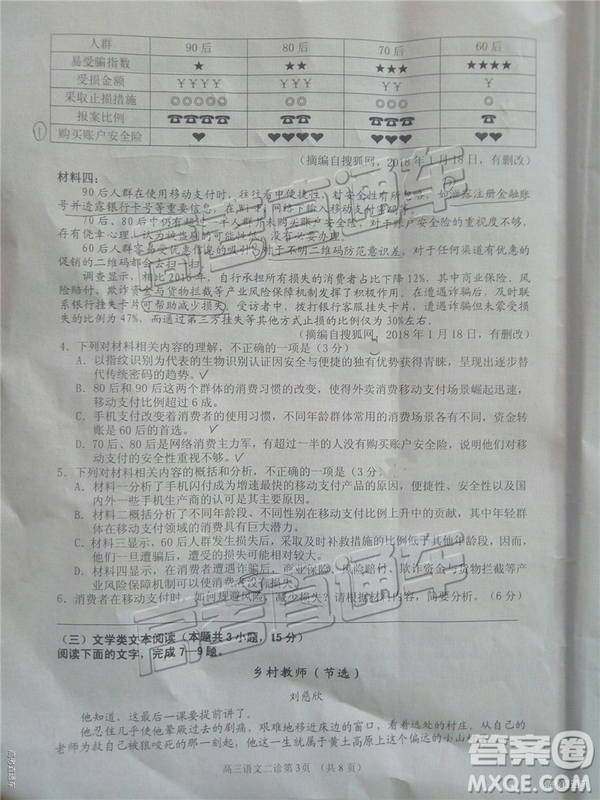 人群 90后 80后 70后 60后
易受骗指数 ★ ★★ ★★★ ★★★★
受损金额 ¥¥¥¥ ¥¥¥ ¥¥ ¥
采取止损措施 ◎◎◎◎◎ ◎◎◎◎ ◎◎◎ ◎◎
报案比例 ☎☎☎☎ ☎☎☎ ☎☎ ☎
购买账户安全险 ❤ ❤❤❤❤ ❤❤❤ ❤❤
(摘编自搜狐网,2018年1月18日,有删改)
材料四:
90后人群在使用移动支付时,往往看中便捷性,对安全性有所忽略,如泄露注册金融账
号并透露银行卡号等重要信息,在
70后、80后中仍有超过一半人群未购买账户安全险,对于移动支付安全性的重视度不够,
存有侥幸心理,认为被盗刷的可能性不大,没有必要购买。
60后人群容易受优惠信息的吸引,对于不明二维码防范意识差,对于任何渠道有优惠的
促销的二维码都会去扫一扫。
调查显示,相比2016年,自行承担所有损失的消费者占比下降12%,其中商业保险、风
险赔付、欺诈资金与货物拦截等产业风险保障机制发挥了积极作用。在遭遇诈骗后,及时联
系银行挂失卡片可帮助减少损失。受访者中,拨打银行客服挂失卡片、遭遇诈骗但未蒙受损
失的比例为47%,而通过第三方挂失等其他方式止损的比例仅为30%左右。
(摘编自搜狐网,2018年1月18日,有删改)
4.下列对材料相关内容的理解,不正确的一项是(3分)
A.以指纹识别为代表的生物识别认证因安全与便捷的独有优势获得青睐,呈现赶超并替
代传统密码的态势。
B.80后和90后这两个群体的消费习惯推动移动支付快速发展,使用移动支付场景崛起迅速,
移动支付比例超过6成。
C.手机支付改变着消费者的使用习惯,不同年龄群体的常用消费场景各有不同,资金转
账是60后的首选。
D.70后、80后是网络消费主力军,有超过一半的人没有购买账户安全险,说明他们对移
动支付的安全性重视不够。
5.下列对材料相关内容的概括和分析,不正确的一项是(3分)
A.材料一分析了手机闪付成为增速最快的移动支付产品的原因,便捷性、安全性以及国
内外一些手机生产商的认可是其主要原因。
B.材料二概括分析了不同年龄段、不同性别人群在移动支付比例上升中的贡献,其中年轻
群体在移动支付领域的消费具有巨大潜力。
C.材料三显示,60后人群发生损失后,及时补救措施的比例低于其他年龄段,因而,
他们一旦遭遇骗后,损失也是最严重的。
D.材料四显示,在消费者遭遇诈骗后,商业保险、风险赔付、欺诈资金与货物拦截等产
业风险保障机制可以使消费者没有损失。
6.消费者在移动支付时,如何规避风险、减少损失?请根据材料简要概括。(6分)
(三)文学类文本阅读(本题共3小题,15分)
阅读下面的文字,完成7—9题。
乡村教师(节选)
刘慈欣
他知道,这最后一课要提前讲了。
他忍住几乎使他晕厥过去的剧痛,艰难地移近床头,看着远处的村庄,
老师为救大家而死,他的一生就属于黄土高原上这个偏远的小山村
高三语文二诊第3页 (共8页)
高考直通车
答案圈